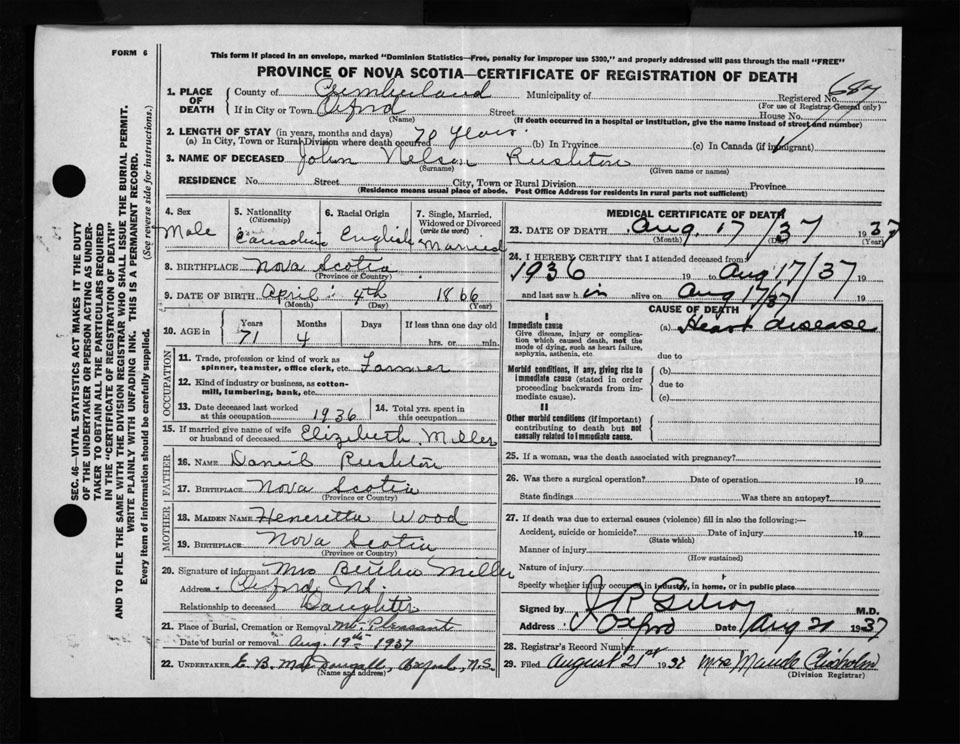 FORM 6
This form if placed in an envelope, marked "Dominion Statistics—Free, penalty for improper use $300," and properly addressed will pass through the mail "FREE"
PROVINCE OF NOVA SCOTIA—CERTIFICATE OF REGISTRATION OF DEATH
SEC. 46—VITAL STATISTICS ACT MAKES IT THE DUTY
OF THE UNDERTAKER OR PERSON ACTING AS UNDER-
TAKER TO OBTAIN ALL THE PARTICULARS REQUIRED
IN THE "CERTIFICATE OF REGISTRATION OF DEATH"
AND TO FILE THE SAME WITH THE DIVISION REGISTRAR WHO SHALL ISSUE THE BURIAL PERMIT.
WRITE PLAINLY WITH UNFADING INK. THIS IS A PERMANENT RECORD.
Every item of information should be carefully supplied. (See reverse side for instructions.)
1. PLACE OF DEATH County of Cumberland Municipality of Registered No. 687
(For use of Registrar General only)
If in City or Town Oxford Street House No.
(Name) (If death occurred in a hospital or institution, give the name instead of street and number)
2. LENGTH OF STAY (in years, months and days) 70 years.
(a) In City, Town or Rural Division where death occurred (b) In Province (c) In Canada (if immigrant)
3. NAME OF DECEASED John Nelson Rushton
(Surname) (Given name or names)
RESIDENCE No. Street City, Town or Rural Division Province
(Residence means usual place of abode. Post Office Address for residents in rural parts not sufficient)
4. Sex Male
5. Nationality (Citizenship) Canadian
6. Racial Origin English
7. Single, Married, Widowed or Divorced (write the word) Married
8. BIRTHPLACE Nova Scotia
(Province or Country)
9. DATE OF BIRTH April 4th 1866
(Month) (Day) (Year)
10. AGE in Years 71 Months 4 Days If less than one day old hrs. or min.
OCCUPATION
11. Trade, profession or kind of work as spinner, teamster, office clerk, etc. Farmer
12. Kind of industry or business, as cotton-mill, lumbering, bank, etc.
13. Date deceased last worked at this occupation 1936
14. Total yrs. spent in this occupation
15. If married give name of wife or husband of deceased Elizabeth Miller
FATHER
16. NAME Daniel Rushton
17. BIRTHPLACE Nova Scotia
(Province or Country)
MOTHER
18. MAIDEN NAME Henerietta Wood
19. BIRTHPLACE Nova Scotia
(Province or Country)
20. Signature of informant Mrs Miller
Address Oxford N.S.
Relationship to deceased Daughter
21. Place of Burial, Cremation or Removal Mt. Pleasant
Date of burial or removal Aug. 19th 1937
22. UNDERTAKER E. B. MacDougall, Oxford, N.S.
(Name and address)
MEDICAL CERTIFICATE OF DEATH
23. DATE OF DEATH Aug. 17/37 1937
(Month) (Day) (Year)
24. I HEREBY CERTIFY that I attended deceased from
1936 19 to Aug 17/37 19
and last saw h im alive on Aug 17/37 19
CAUSE OF DEATH
I
Immediate cause (a) Heart disease
Give disease, injury or complication which caused death, not the mode of dying, such as heart failure, asphyxia, asthenia, etc.
due to
Morbid conditions, if any, giving rise to immediate cause (stated in order proceeding backwards from immediate cause).
(b)
due to
(c)
II
Other morbid conditions (if important) contributing to death but not causally related to immediate cause.
25. If a woman, was the death associated with pregnancy?
26. Was there a surgical operation? Date of operation 19
State findings Was there an autopsy?
27. If death was due to external causes (violence) fill in also the following:—
Accident, suicide or homicide? Date of injury 19
(State which)
Manner of injury
(How sustained)
Nature of injury
Specify whether injury occurred in industry, in home, or in public place
Signed by J R Gilroy M.D.
Address Oxford Date Aug 21 1937
28. Registrar's Record Number
29. Filed August 21st 1937 Mrs Maude Chisholm
(Division Registrar)